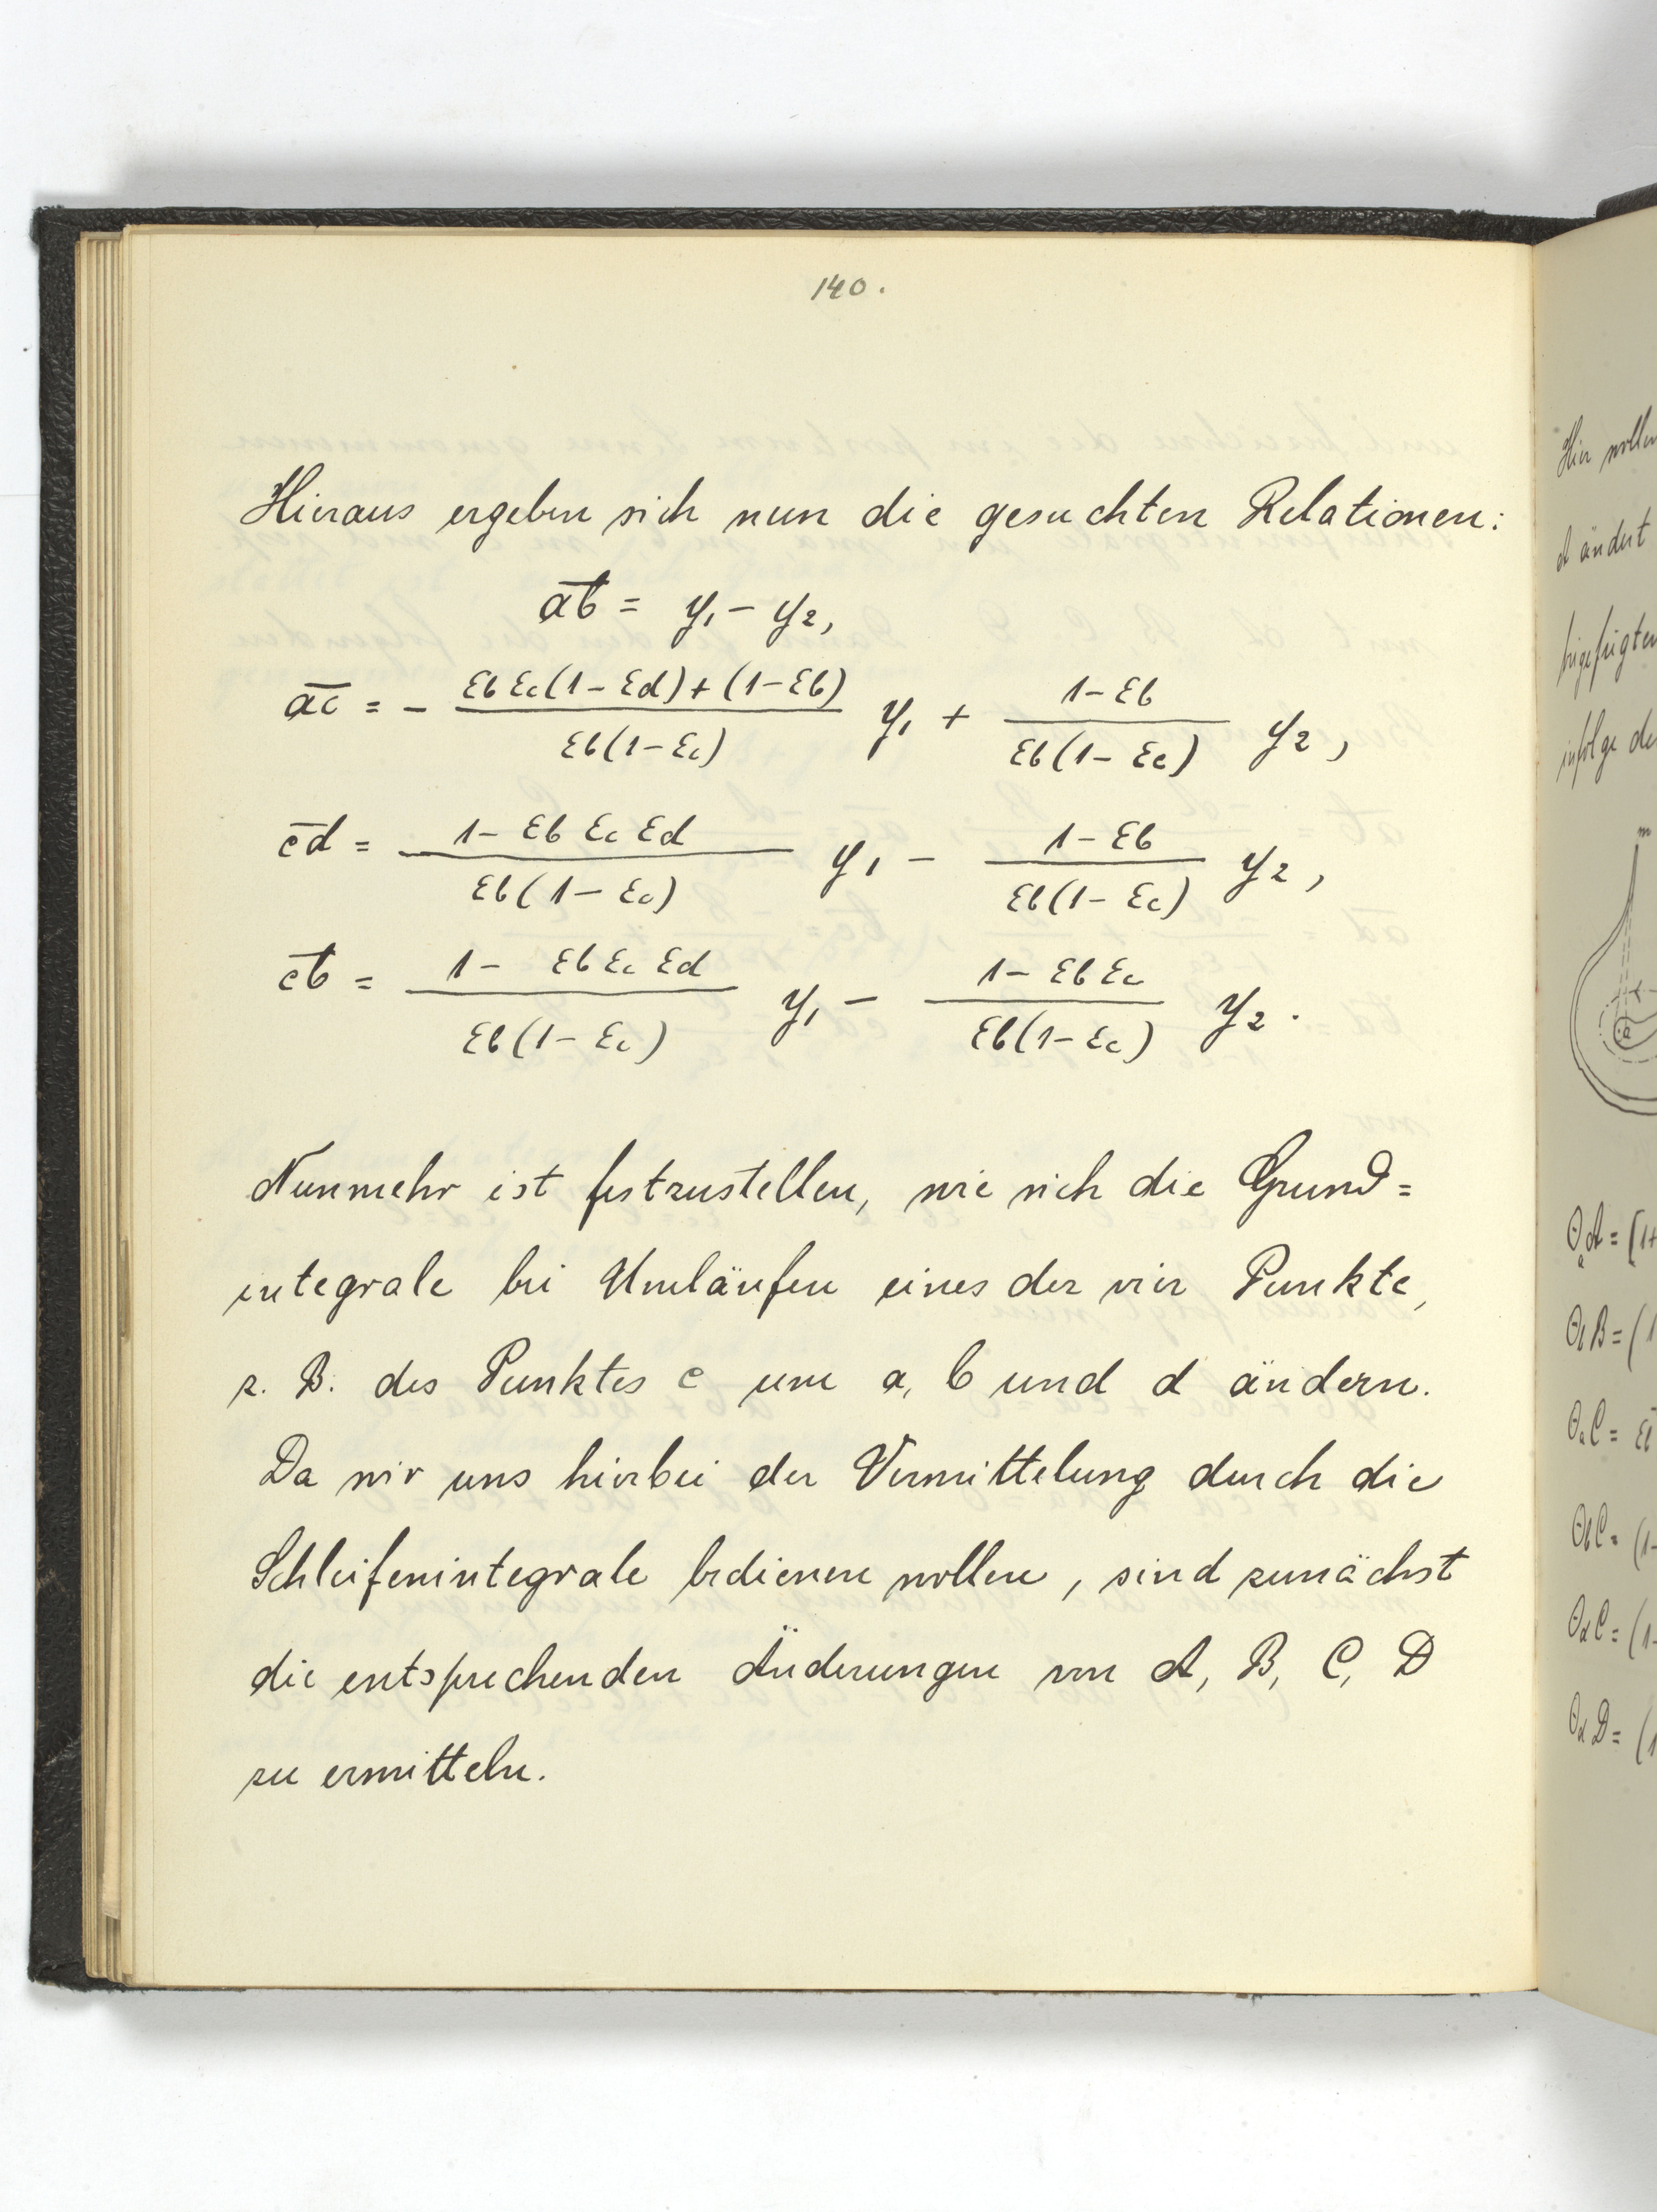 140.
Hieraus ergeben sich nun die gesuchten Relationen:
a̅b̅ = y₁ − y₂,
a̅c̅ = − (εb εc(1−εd)+(1−εb))/(εb(1−εc)) y₁ + (1−εb)/(εb(1−εc)) y₂,
c̅d̅ = (1−εb εc εd)/(εb(1−εc)) y₁ − (1−εb)/(εb(1−εc)) y₂,
c̅b̅ = (1− εb εc εd)/(εb(1−εc)) y₁ − (1−εb εc)/(εb(1−εc)) y₂.
Nunmehr ist festzustellen, wie sich die Grund=
integrale bei Umläufen eines der vier Punkte,
z. B. des Punktes c um a, b und d ändern.
Da wir uns hierbei der Vermittelung durch die
Schleifenintegrale bedienen wollen, sind zunächst
die entsprechenden Änderungen von A, B, C, D
zu ermitteln.
Hier wollen
A ändert
beigefügten
infolge de
m
a
ΘaA = [1+
ΘbB = (1
ΘaC = ε
ΘbC = (1-
ΘdC = (1-
ΘdD = (1